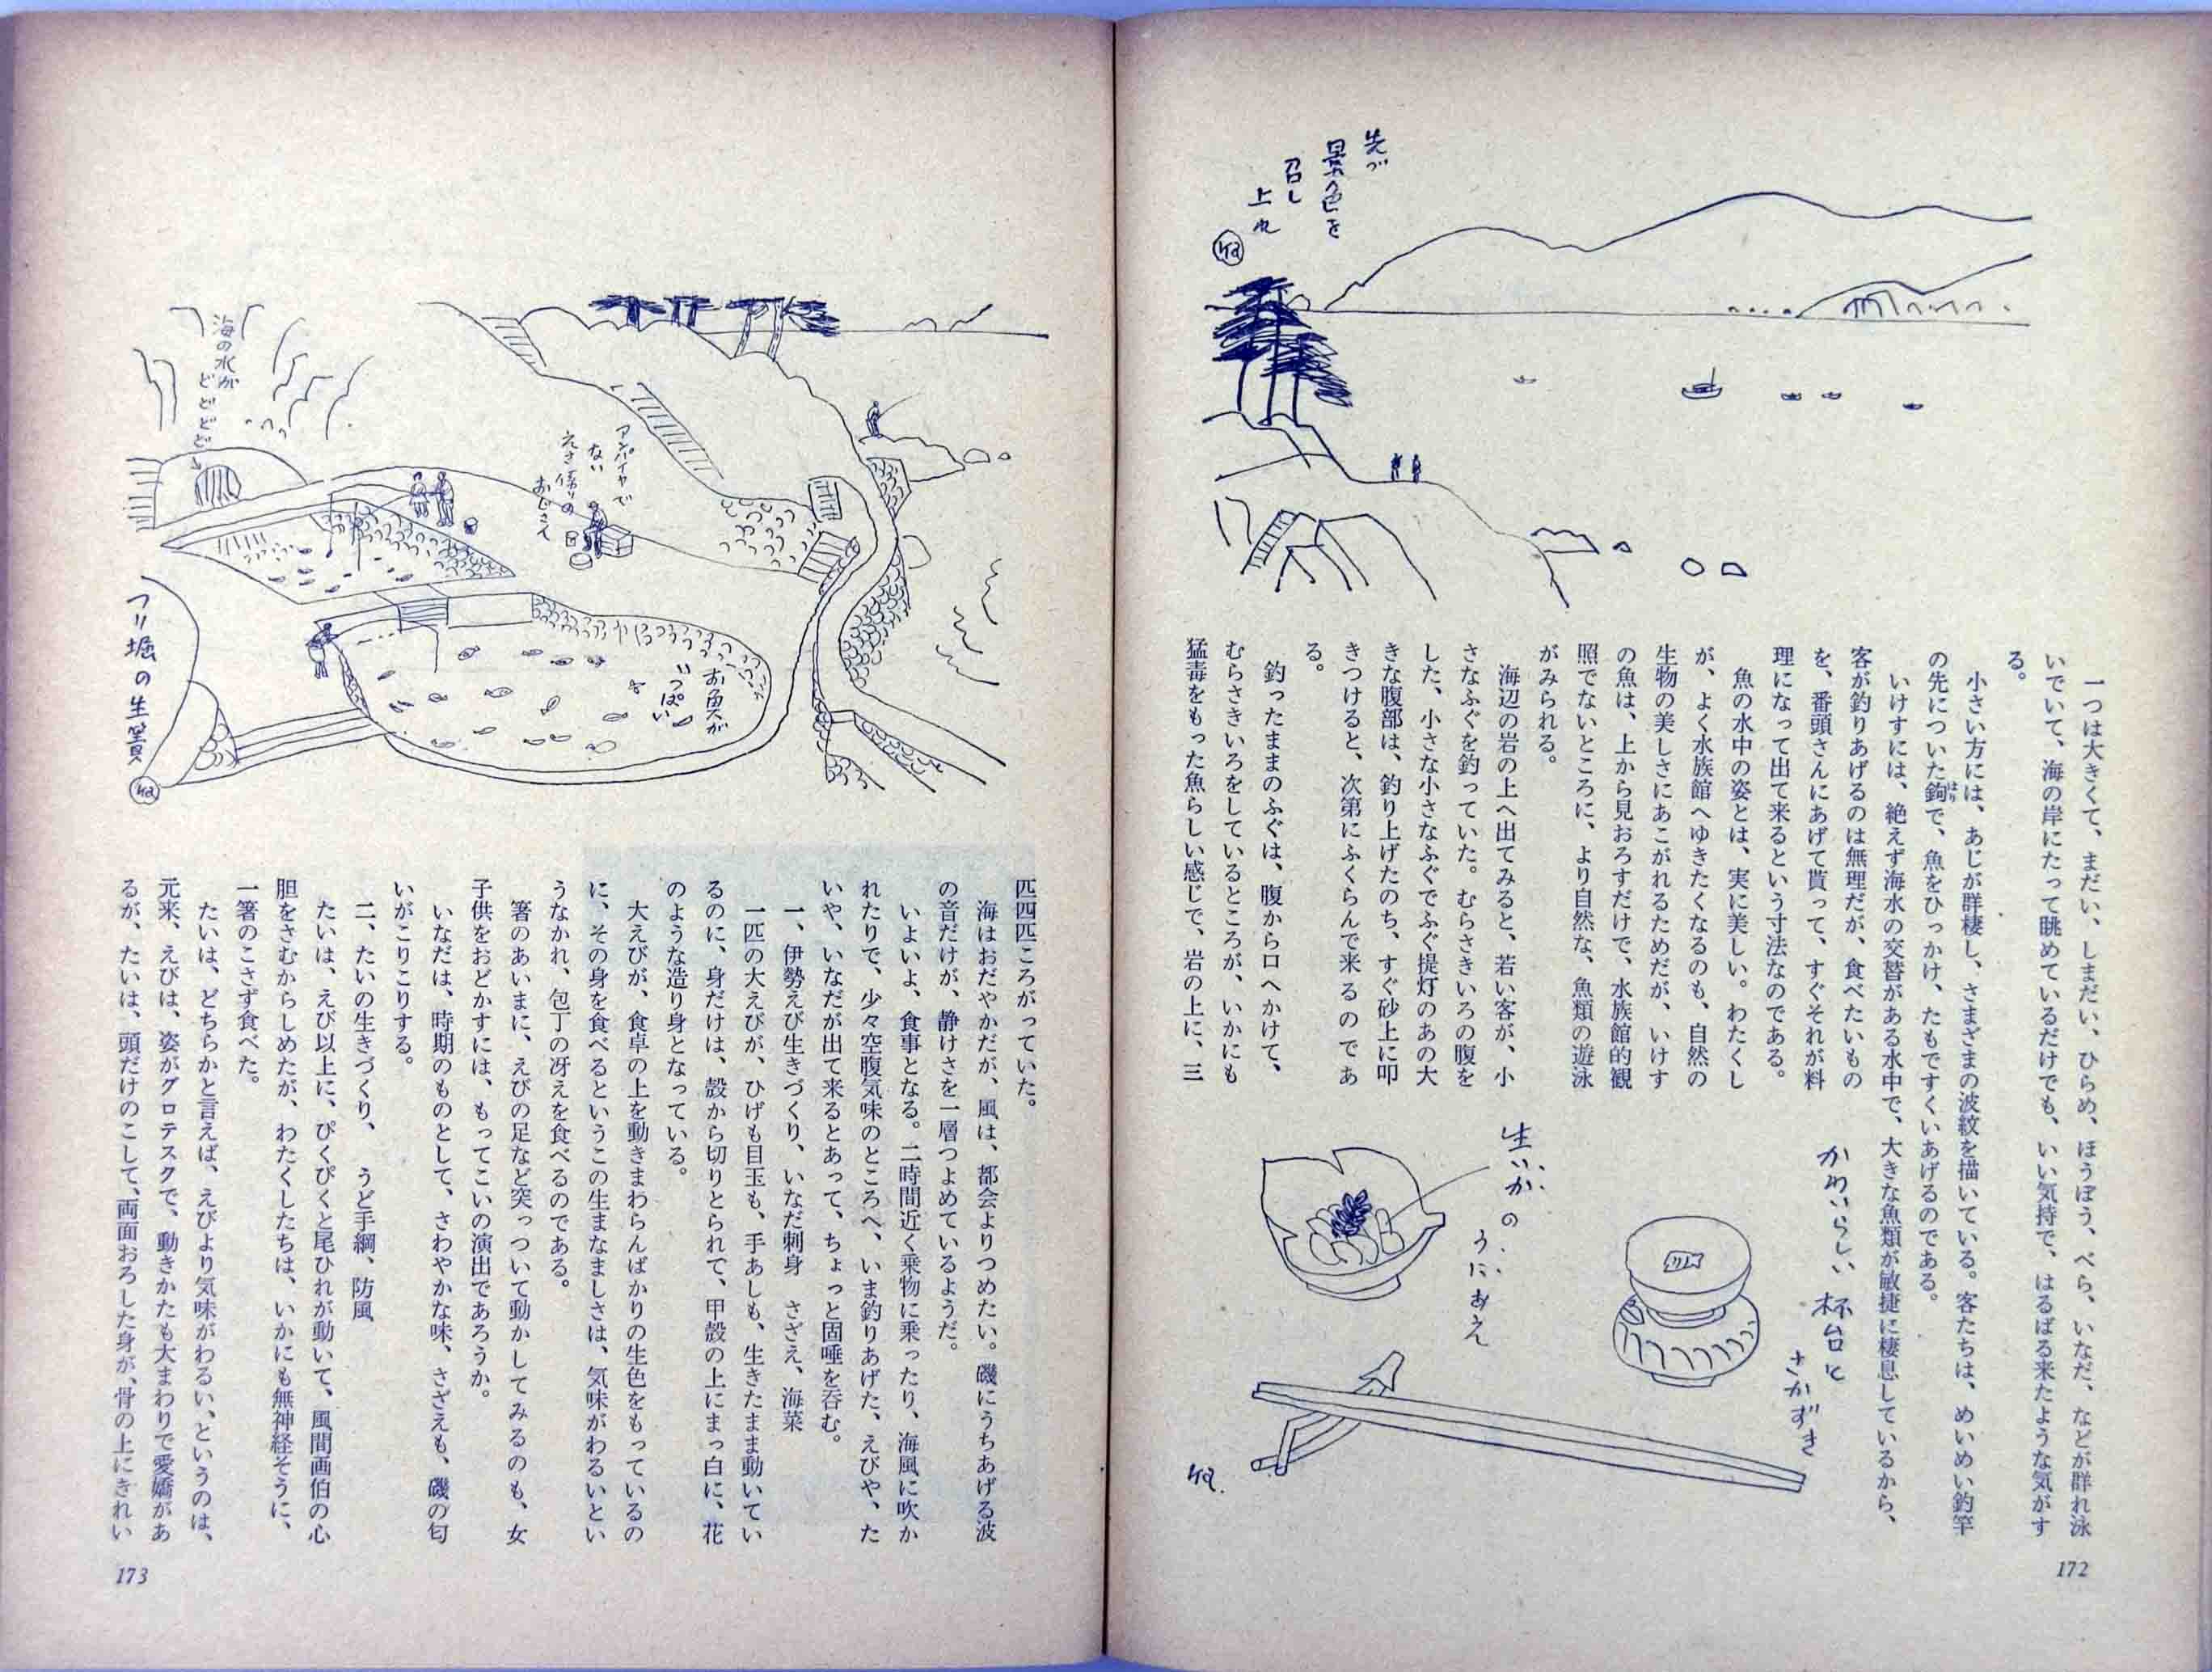 先づ
景色を
召し
上れ
一つは大きくて、まだい、しまだい、ひらめ、ほうぼう、べら、いなだ、などが群れ泳
いでいて、海の岸にたって眺めているだけでも、いい気持で、はるばる来たような気がす
る。
小さい方には、あじが群棲し、さまざまの波紋を描いている。客たちは、めいめい釣竿
の先についた鉤はりで、魚をひっかけ、たもですくいあげるのである。
いけすには、絶えず海水の交替がある水中で、大きな魚類が敏捷に棲息しているから、
客が釣りあげるのは無理だが、食べたいもの
を、番頭さんにあげて貰って、すぐそれが料
理になって出て来るという寸法なのである。
魚の水中の姿とは、実に美しい。わたくし
が、よく水族館へゆきたくなるのも、自然の
生物の美しさにあこがれるためだが、いけす
の魚は、上から見おろすだけで、水族館的観
照でないところに、より自然な、魚類の遊泳
がみられる。
海辺の岩の上へ出てみると、若い客が、小
さなふぐを釣っていた。むらさきいろの腹を
した、小さな小さなふぐでふぐ提灯のあの大
きな腹部は、釣り上げたのち、すぐ砂上に叩
きつけると、次第にふくらんで来るのであ
る。
釣ったままのふぐは、腹から口へかけて、
むらさきいろをしているところが、いかにも
猛毒をもった魚らしい感じで、岩の上に、三
かわいらしい杯台と
さかずき
生いかの
うにあえ
172
海の水が
どどどど
アンパイヤで
ない
えさ係りの
おじさん
お魚が
いっぱい
ツリ堀の生簀
匹四匹ころがっていた。
海はおだやかだが、風は、都会よりつめたい。磯にうちあげる波
の音だけが、静けさを一層つよめているようだ。
いよいよ、食事となる。二時間近く乗物に乗ったり、海風に吹か
れたりで、少々空腹気味のところへ、いま釣りあげた、えびや、た
いや、いなだが出て来るとあって、ちょっと固唾を呑む。
一、伊勢えび生きづくり、いなだ刺身　さざえ、海菜
一匹の大えびが、ひげも目玉も、手あしも、生きたまま動いてい
るのに、身だけは、殻から切りとられて、甲殻の上にまっ白に、花
のような造り身となっている。
大えびが、食卓の上を動きまわらんばかりの生色をもっているの
に、その身を食べるというこの生まなましさは、気味がわるいとい
うなかれ、包丁の冴えを食べるのである。
箸のあいまに、えびの足など突っついて動かしてみるのも、女
子供をおどかすには、もってこいの演出であろうか。
いなだは、時期のものとして、さわやかな味、さざえも、磯の匂
いがこりこりする。
二、たいの生きづくり、　うど手綱、防風
たいは、えび以上に、ぴくぴくと尾ひれが動いて、風間画伯の心
胆をさむからしめたが、わたくしたちは、いかにも無神経そうに、
一箸のこさず食べた。
たいは、どちらかと言えば、えびより気味がわるい、というのは、
元来、えびは、姿がグロテスクで、動きかたも大まわりで愛嬌があ
るが、たいは、頭だけのこして、両面おろした身が、骨の上にきれい
173